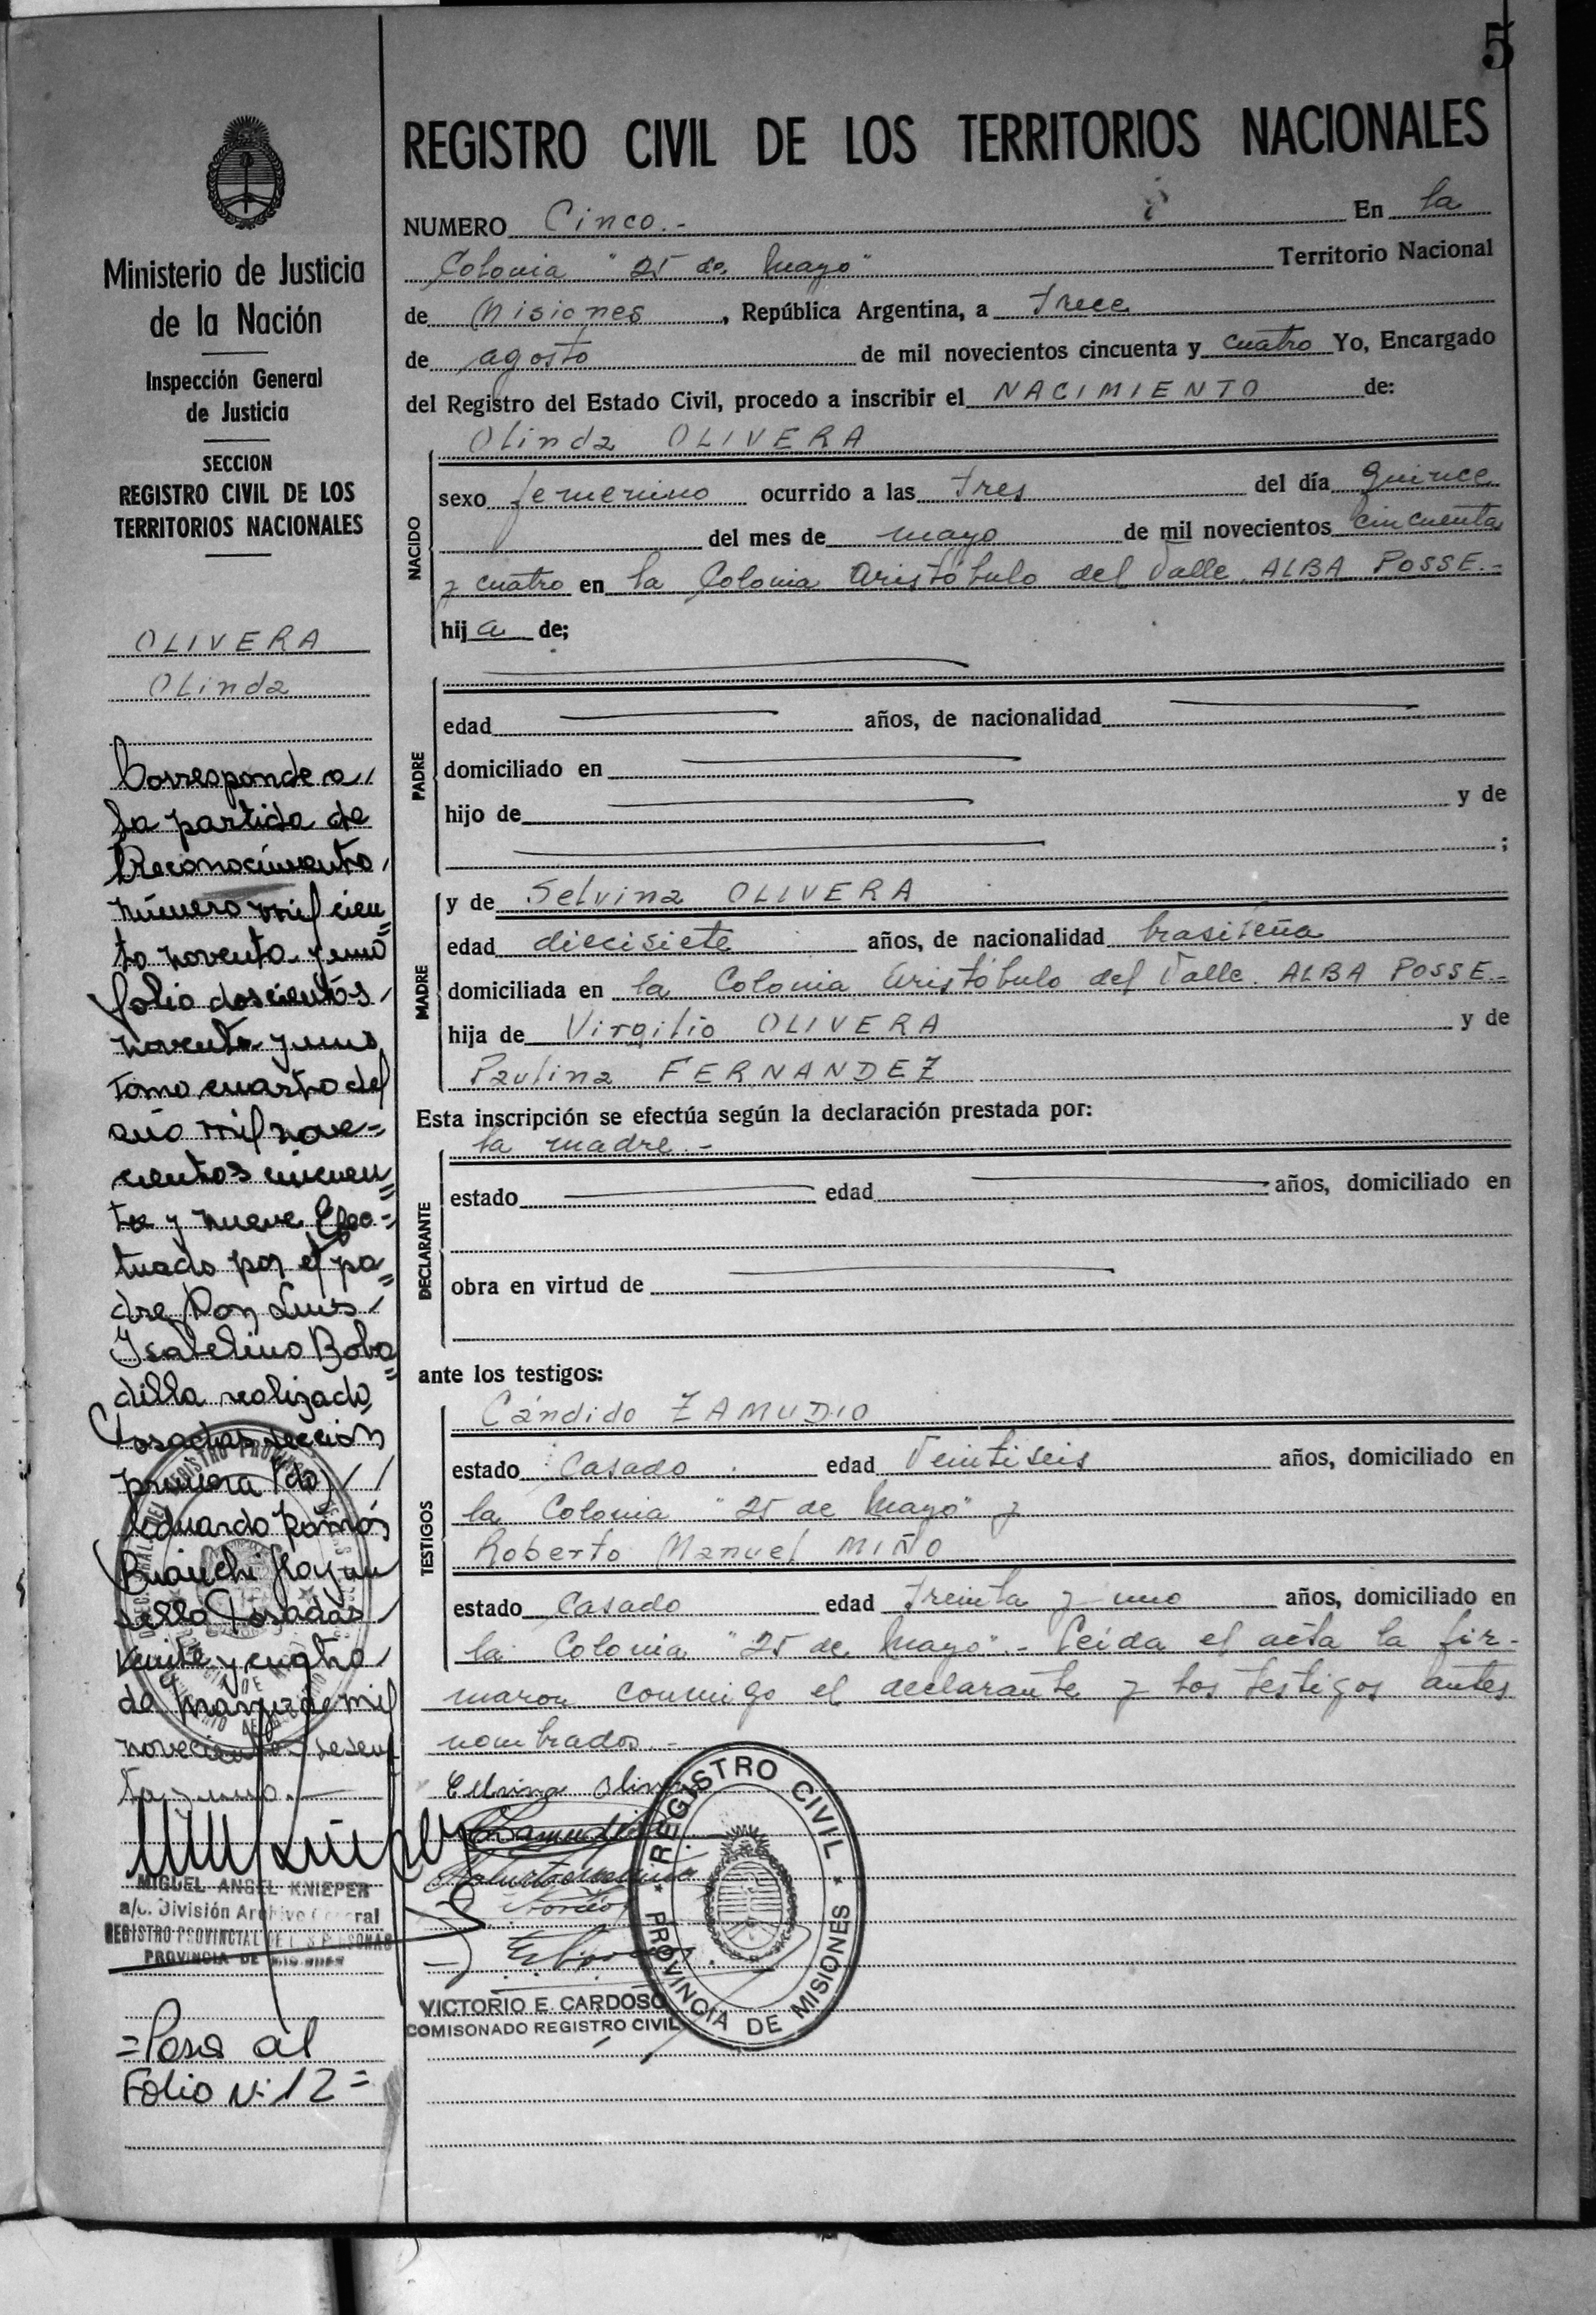 5
Ministerio de Justicia
de la Nación
Inspección General
de Justicia
SECCION
REGISTRO CIVIL DE LOS
TERRITORIOS NACIONALES
OLIVERA
Olinda
Corresponde a
la partida de
Reconocimiento
número mil cien
to noventa y uno
folio doscientos
noventa y uno
tomo cuarto del
año mil nove=
cientos cincuen
ta y nueve Efec=
tuado por el pa
dre Don Luis
Isabelino Boba
dilla realizado
Posadas sección
primera (do)
Eduardo Ramós
Bianchi Hay un
sello Posadas
veinte y cuatro
de Marzo de mil
novecientos sesen
ta y uno.
MIGUEL ANGEL KNIEPER
a/c. División Archivo General
REGISTRO PROVINCIAL DE LAS PERSONAS
PROVINCIA DE MISIONES
=Pasa al
Folio Nº 12=
REGISTRO CIVIL DE LOS TERRITORIOS NACIONALES
NUMERO Cinco.- En la
Colonia "25 de Mayo" Territorio Nacional
de Misiones, República Argentina, a trece
de agosto de mil novecientos cincuenta y cuatro Yo, Encargado
del Registro del Estado Civil, procedo a inscribir el NACIMIENTO de:
NACIDO
Olinda OLIVERA
sexo femenino ocurrido a las tres del día quince
del mes de mayo de mil novecientos cincuenta
y cuatro en la Colonia Aristóbulo del Valle. ALBA POSSE.-
hija de;
PADRE
edad años, de nacionalidad
domiciliado en
hijo de y de
;
MADRE
y de Selvina OLIVERA
edad diecisiete años, de nacionalidad brasileña
domiciliada en la Colonia Aristóbulo del Valle. ALBA POSSE.-
hija de Virgilio OLIVERA y de
Paulina FERNANDEZ
Esta inscripción se efectúa según la declaración prestada por:
DECLARANTE
la madre.-
estado edad años, domiciliado en
obra en virtud de
ante los testigos:
TESTIGOS
Cándido ZAMUDIO
estado Casado edad Veintiseis años, domiciliado en
la Colonia "25 de Mayo" y
Roberto Manuel MIÑO
estado Casado edad treinta y uno años, domiciliado en
la Colonia "25 de Mayo".- Leída el acta la fir-
maron conmigo el declarante y los testigos antes
nombrados.-
VICTORIO E. CARDOSO
COMISONADO REGISTRO CIVIL
REGISTRO CIVIL
PROVINCIA DE MISIONES